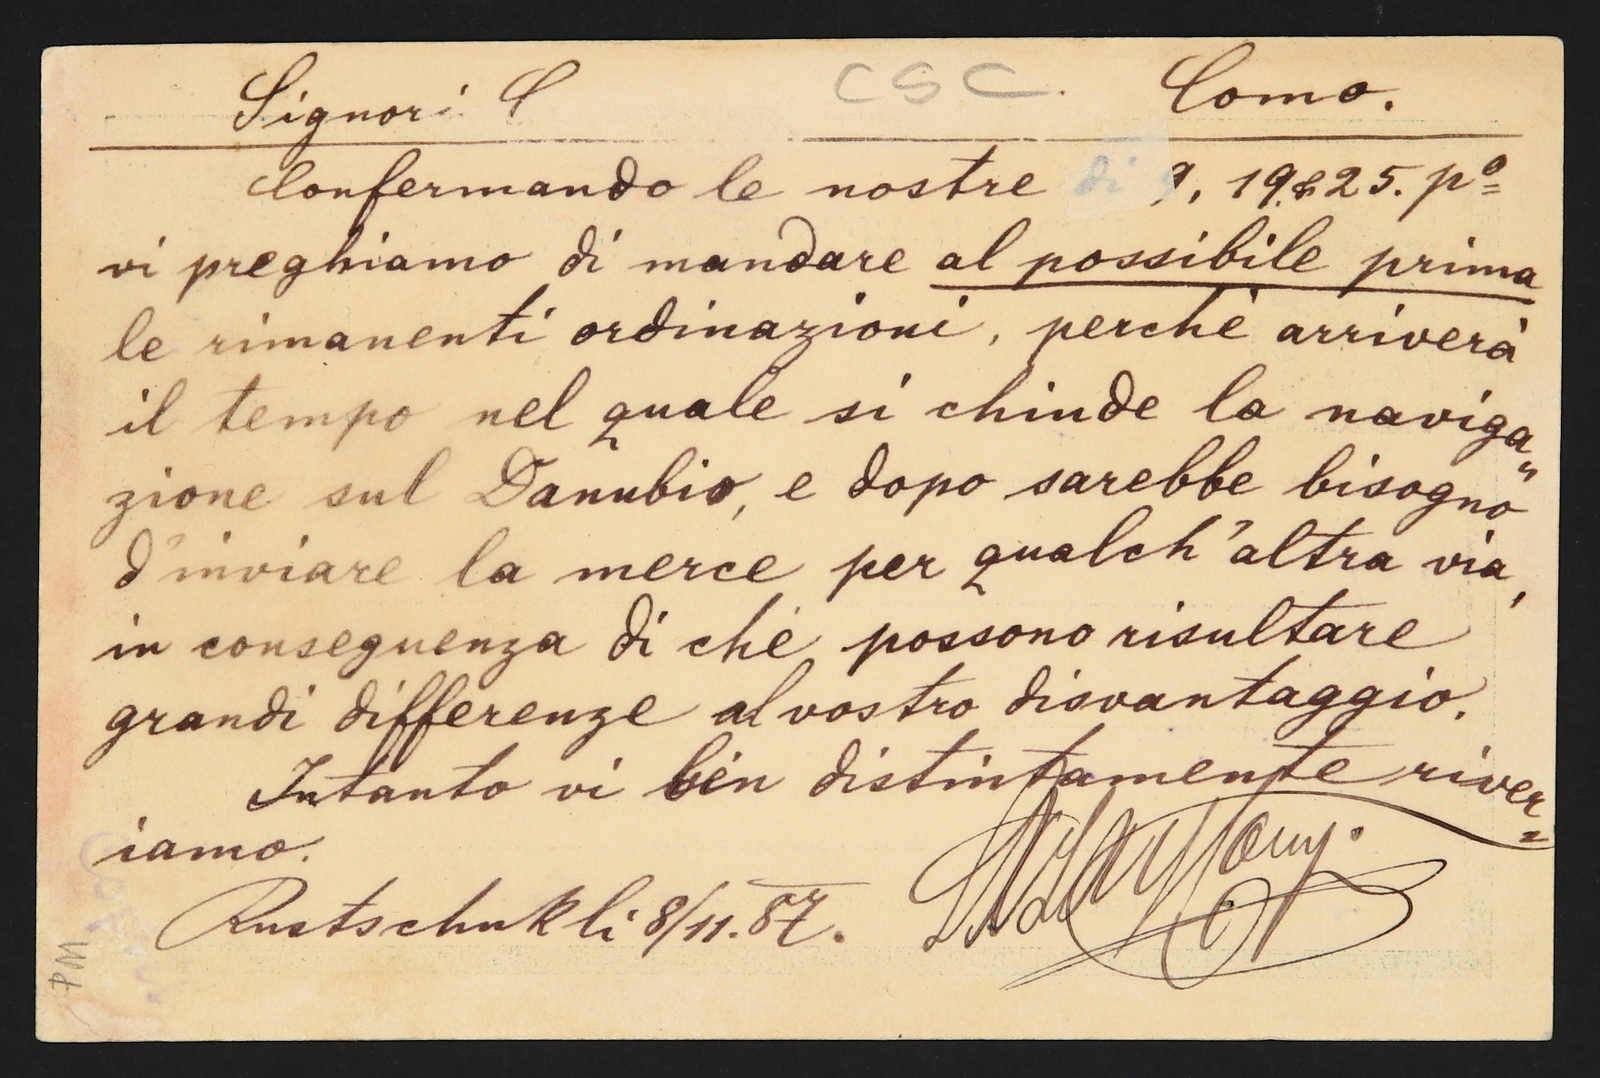 Signori C CSC. Como.
Confermando le nostre di 9, 19 & 25. pº
vi preghiamo di mandare al possibile prima
le rimanenti ordinazioni, perchè arriverà
il tempo nel quale si chiude la naviga"
zione sul Danubio, e dopo sarebbe bisogno
d'inviare la merce per qualch'altra via,
in conseguenza di che possono risultare
grandi differenze al vostro disvantaggio.
Intanto vi ben distintamente river=
iamo.
Rustschuk li 8/11. 87.
PM